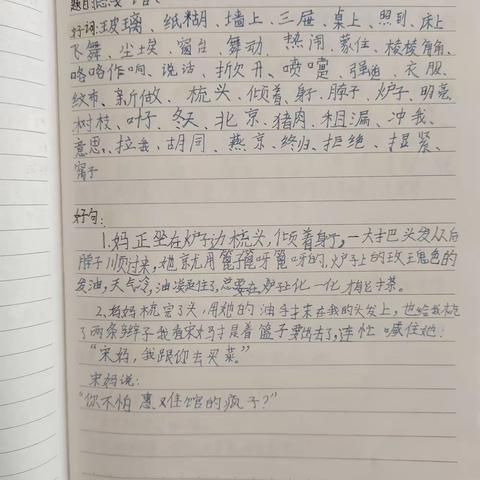 题目:
好词:玻璃、纸糊、墙上、三屉、桌上、照到、床上
飞舞、尘埃、窗台、舞动、热闹、蒙住、棱棱角角、
咯咯作响、说话、折欠开、喷嚏、强迫、衣服、
纹布、新做、梳头、倾着、身子、脖子、炉子、明亮、
树枝、叶子、冬天、北京、猪肉、租漏、冲我、
意思、拉我、胡同、燕京、终归、拒绝、捏紧、
帘子
好句:
1.妈正坐在炉子边梳头,倾着身子,一大把头发从后
脖子顺过来,她就用篦子篦呀篦呀的,炉子上的玫瑰色的
发油,天气冷,油凝住了,总要在炉灶化一化才能搽。
2.妈妈梳完了头,用她的油手抹在我的头发上,也给我梳
了两条辫子我看宋妈才是着篮子要出去了,连忙喊住她:
“宋妈,我跟你去买菜。”
宋妈说:
“你不怕惠难馆的疯子?”